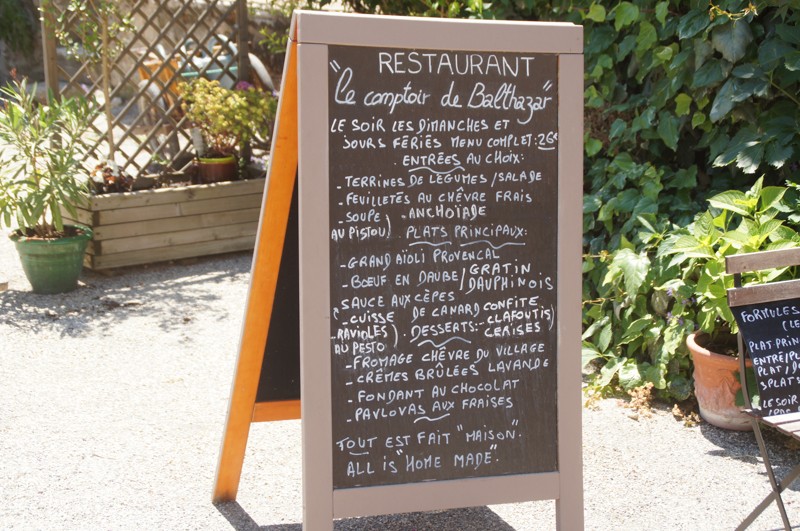 RESTAURANT
"Le comptoir de Balthazar"
LE SOIR LES DIMANCHES ET
JOURS FÉRIÉS MENU COMPLET: 26€
ENTRÉES AU CHOIX:
- TERRINES DE LÉGUMES / SALADE
- FEUILLETÉS AU CHÊVRE FRAIS
- SOUPE AU PISTOU ) - ANCHOÏADE
PLATS PRINCIPAUX:
- GRAND AÏOLI PROVENCAL
- BŒUF EN DAUBE / GRATIN DAUPHINOIS
SAUCE AUX CÈPES
( - CUISSE DE CANARD CONFITE
- RAVIOLES AU PESTO )
DESSERTS: - CLAFOUTIS CERISES )
- FROMAGE CHÊVRE DU VILLAGE
- CRÊMES BRÛLÉES LAVANDE
- FONDANT AU CHOCOLAT
- PAVLOVAS AUX FRAISES
TOUT EST FAIT "MAISON".
ALL iS "HOME MADE".
FORMULES
(LE
PLAT PRIN
ENTRE/PL
PLAT/D
LE SOIR